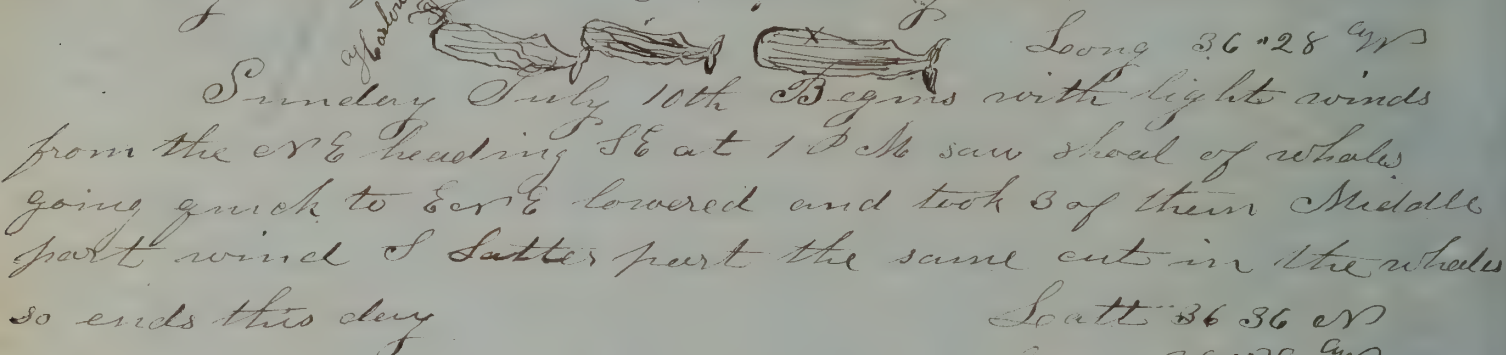 Long 36 "28 W
Sunday July 10th Begins with light winds
from the NE heading SE at 1 P M saw shoal of whales
going quick to ENE lowered and took 3 of them Middle
part wind S Latter part the same cut in the whales
so ends this day
Latt 36 36 N